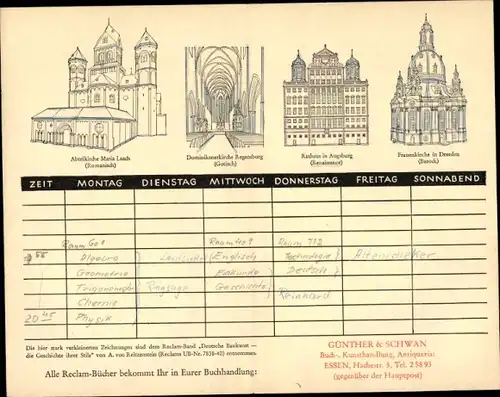 Abteikirche Maria Laach
(Romanisch)
Dominikanerkirche Regensburg
(Gotisch)
Rathaus in Augsburg
(Renaissance)
Frauenkirche in Dresden
(Barock)
ZEIT MONTAG DIENSTAG MITTWOCH DONNERSTAG FREITAG SONNABEND
Raum 601 Raum 401 Raum 712
Algebra Englisch Technologie Altenscheker
Geometrie Erdkunde Deutsch
Trigonometr Geschichte Reinhard
Chemie
20 45 Physik
Die hier stark verkleinerten Zeichnungen sind dem Reclam-Band „Deutsche Baukunst —
die Geschichte ihrer Stile" von A. von Reitzenstein (Reclams UB-Nr. 7838-42) entnommen.
Alle Reclam-Bücher bekommt Ihr in Eurer Buchhandlung:
GÜNTHER & SCHWAN
Buch-, Kunsthandlung, Antiquariat
ESSEN, Hachestr. 3, Tel. 2 58 93
(gegenüber der Hauptpost)